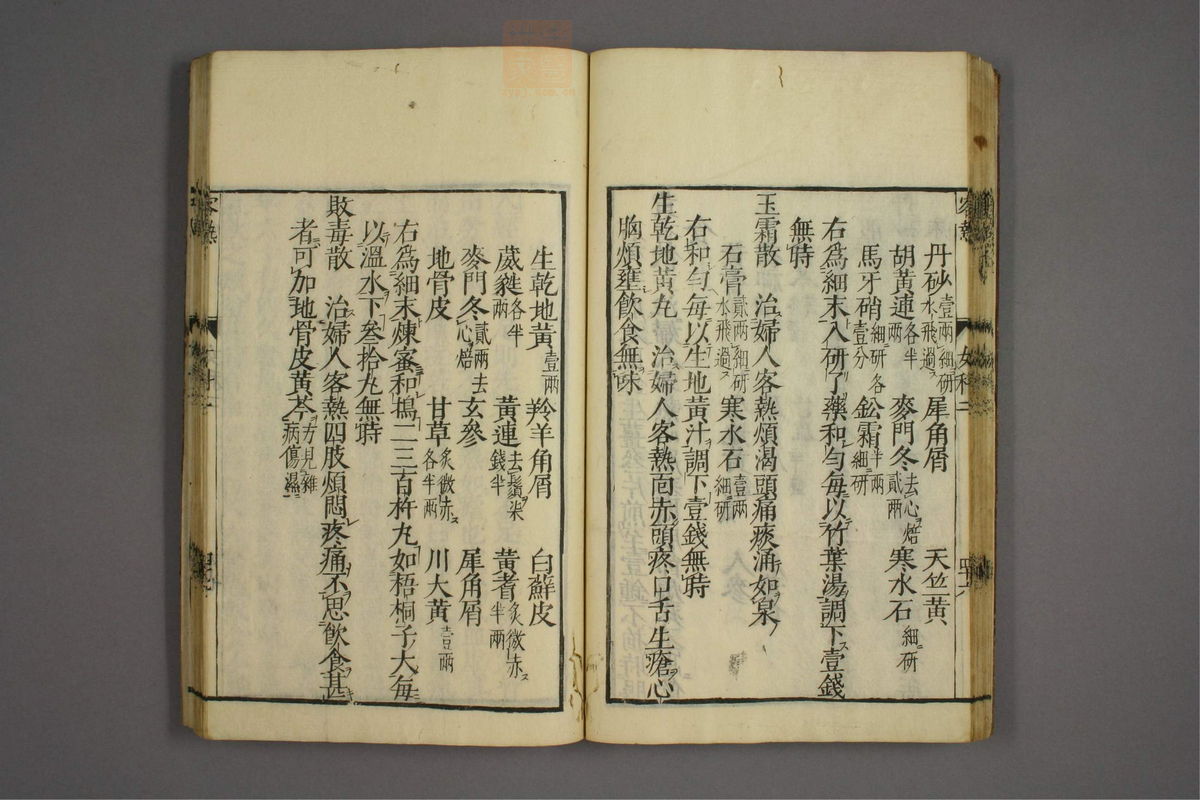 丹砂壹兩細研水飛過 犀角屑 天竺黃
胡黃連各半兩 麥門冬去心焙貳兩 寒水石細研
馬牙硝細研各壹分 鈆霜半兩細研
右爲細末入研了藥和勻每以竹葉湯調下壹錢
無時
玉霜散 治婦人客熱煩渴頭痛痰涌如泉
石膏貳兩細研水飛過 寒水石壹兩細研
右和勻每以生地黃汁調下壹錢無時
生乾地黃丸 治婦人客熱面赤頭疼口舌生瘡心
胸煩壅飲食無味
客熱 女科二
生乾地黃壹兩 羚羊角屑 白鮮皮
葳蕤各半兩 黃連去鬚柒錢半 黃耆炙微赤半兩
麥門冬貳兩去心焙 玄參 犀角屑
地骨皮 甘草炙微赤各半兩 川大黃壹兩
右爲細末煉蜜和搗二三百杵丸如梧桐子大每
以溫水下叄拾丸無時
敗毒散 治婦人客熱四肢煩悶疼痛不思飲食甚
者可加地骨皮黃芩方見雜病傷濕
客熱